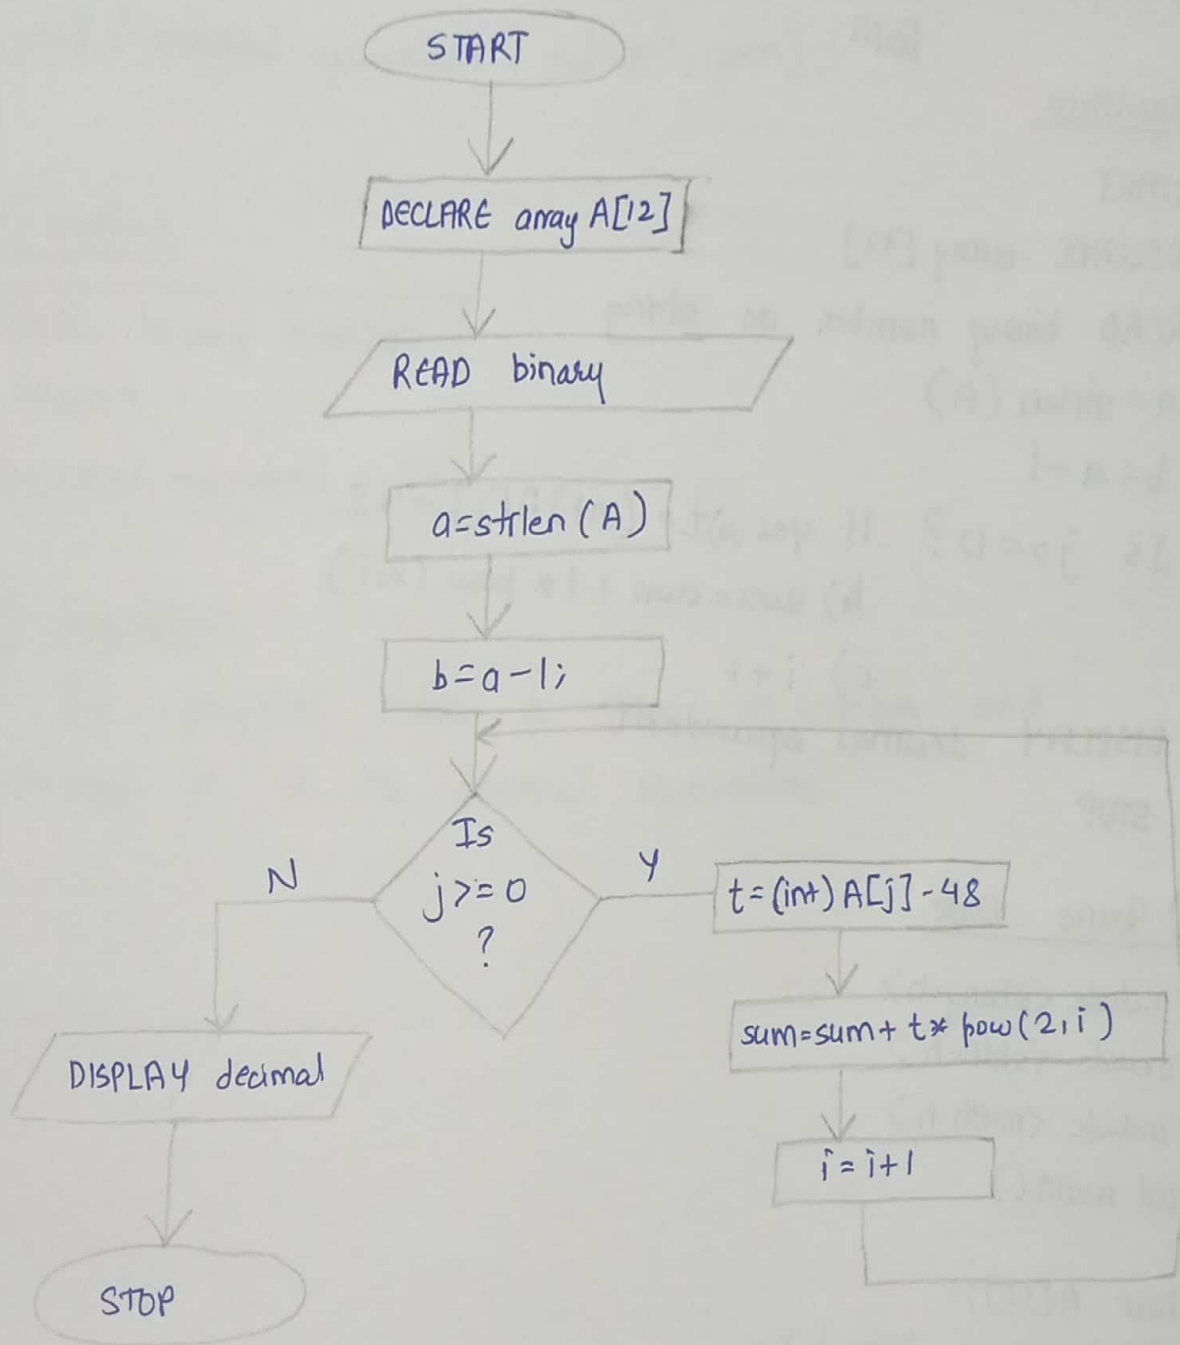 START
DECLARE array A[12]
READ binary
a=strlen (A)
b=a-1;
Is
j>=0
?
N
Y
t=(int) A[j]-48
sum=sum+ t* pow(2,i)
i=i+1
DISPLAY decimal
STOP